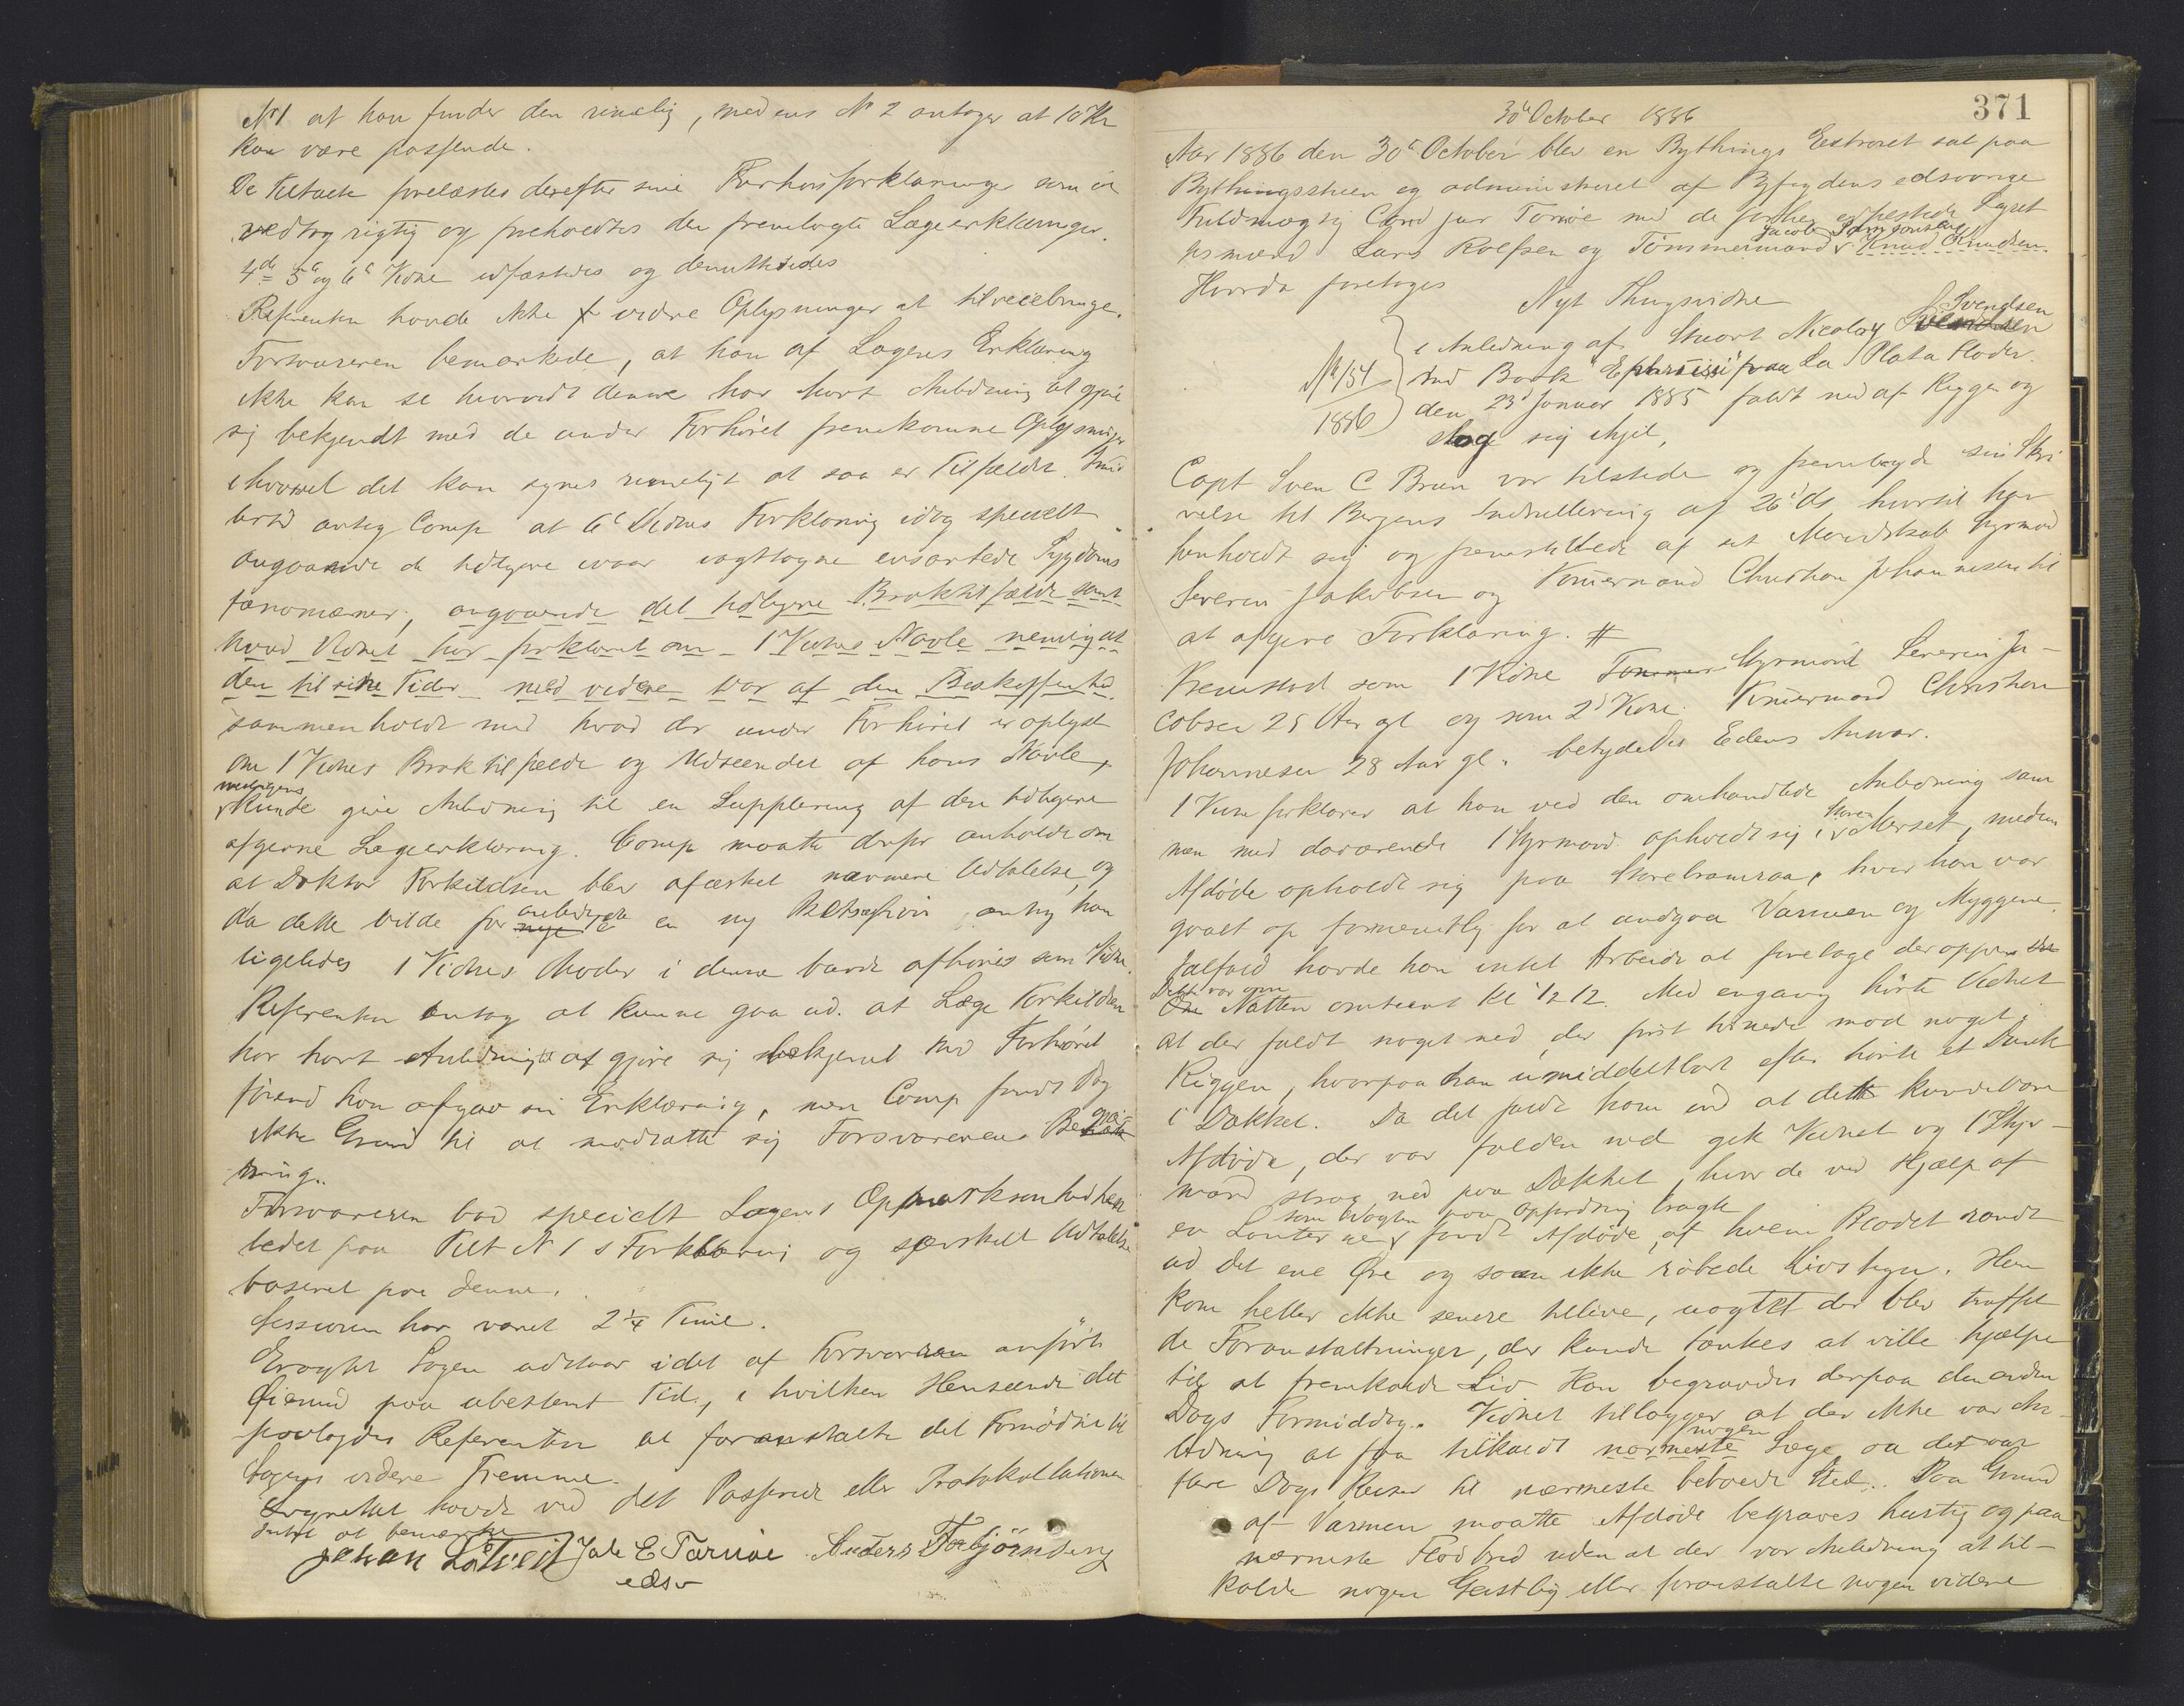 № 1 at han finder den rimelig, medens № 2 antager at 10 Kr
kan være passende.
De tiltalte forelæstes derefter sine Forhørsforklaringer som de
vedtog rigtig og foreholdtes de fremlagte Lægeerklæringer.
4de 5te og 6te Vidne edfæstedes og demitteredes
Referenten havde ikke videre Oplysninger at tilveiebringe.
Forsvareren bemærkede, at han af Lægens Erklæring
ikke kan se hvorvidt denne har havt Anledning til at gjøre
sig bekjendt med de under Forhøret fremkomne Oplysninger
ihvorvel det kan synes rimeligt at saa er Tilfældet. Imid
lertid antog Comp at 6te Vidnes Forklaring idag specielt
angaaende de tidligere iagttagne ensartede Sygdoms
fænomæner, angaaende det tidligere Broktilfælde samt
hvad Vidnet har forklaret om 1 Vidnes Navle nemlig at
den til sine Tider med videre var af den Beskaffenhed
sammenholdt med hvad der under Forhøret er oplyst
om 1 Vidnes Broktilfælde og Udseendet af hans Navle,
muligens
kunde give Anledning til en Supplering af den tidligere
afgivne Lægeerklæring. Comp maatte derfor anholde om
at Doktor Torkildsen blev afæsket nærmere Udtalelse og
da dette vilde foranledige en ny Retsafhør, antog han
ligeledes 1 Vidnes Moder i denne burde afhøres som Vidne.
Referenten antog at kunne gaa ud at Læge Torkildsen
har havt Anledning til at gjøre sig bekjendt med Forhøret
førend han afgav sin Erklæring, men Comp fandt dog
ikke Grund til at modsætte sig Forsvarerens Begjæ
ring..
Forsvareren bad specielt Lægens Opmærksomhed hen
ledet paa Tilt № 1 s Forklaring og særskilt Udtalelse
baseret paa denne.
Sessionen har varet 2 1/4 Time.
Eragtet Sagen udstaar i det af Forsvareren anførte
Øiemed paa ubestemt Tid, i hvilken Henseende det
paalagdes Referenten at foranstalte det Fornødne til
Sagens videre Fremme.
Lagrettet havde ved det Passerede eller Protokollationen
Intet at bemærke
Johan Lotveit Jak E Tornøe Anders Torbjørnsen
edsv
30te October 1886
371
Aar 1886 den 30te October blev en Bythings Extraret sat paa
Bythingsstuen og administreret af Byfogdens edsvorne
Fuldmægtig Cand jur Tornøe med de forhen edfæstede Lagret
Jacob
tesmænd Lars Rolfsen og Tømmermand Knud Knudsen
Hvorda foretoges
Nyt Thingsvidne
Svendsen
i Anledning af Stuart Nicolay Svendsen
№ 154
1886
ved Bark "Ephrussi" paa La Plata floden
den 23de Januar 1885 faldt ned af Riggen og
slog sig ihjel,
Capt Sven C Brun var tilstede og fremlagde sin Skri
velse til Bergens Indrullering af 26de ds hvortil han
henholdt sig og fremstillede af sit Mandskab Styrmand
Severin Jakobsen og Tømmermand Christian Johannesen til
at afgive Forklaring. #
Fremstod som 1 Vidne Styrmand Severin Ja-
cobsen 25 Aar gl og som 2det Vidne Tømmermand Christian
Johannesen 28 Aar gl. betydedes Edens Ansvar.
1 Vidne forklarer at han ved den omhandlede Anledning sam
Store
men med daværende 1 Styrmand opholdt sig i Merset, medens
Afdøde opholdt sig paa Storebramraa, hvor han var
gaaet op formentlig for at undgaa Varmen og Myggene.
Ialfald havde han intet Arbeide at foretage der oppe.
Dette var om
Natten omtrent Kl 1/2 12. Med engang hørte Vidnet
at der faldt noget ned, der først tørnede mod noget i
Riggen, hvorpaa han umiddelbart efter hørte et Dunk
i Dækket. Da det faldt ham ind at dette kunde være
Afdøde, der var falden ned gik Vidnet og 1 Styr-
mand strax ned paa Dækket, hvor de ved Hjælp af
som Vagten paa Opfordring bragte
en Lanterne fandt Afdøde, af hvem Blodet randt
ud det ene Øre og som ikke røbede Livstegn. Han
kom heller ikke senere tillive, uagtet der blev truffet
de Foranstaltninger, der kunde tænkes at ville hjælpe
til at fremkalde Liv. Han begravedes derpaa den anden
Dags Formiddag. Vidnet tillægger at der ikke var An-
nogen
ledning at faa tilkaldt nærmeste Læge, da det var
flere Dags Reiser til nærmeste beboede Sted. Paa Grund
af Varmen maatte Afdøde begraves hurtig og paa
nærmeste Flodbred uden at der var Anledning at til-
kalde nogen Geistlig eller foranstalte nogen videre